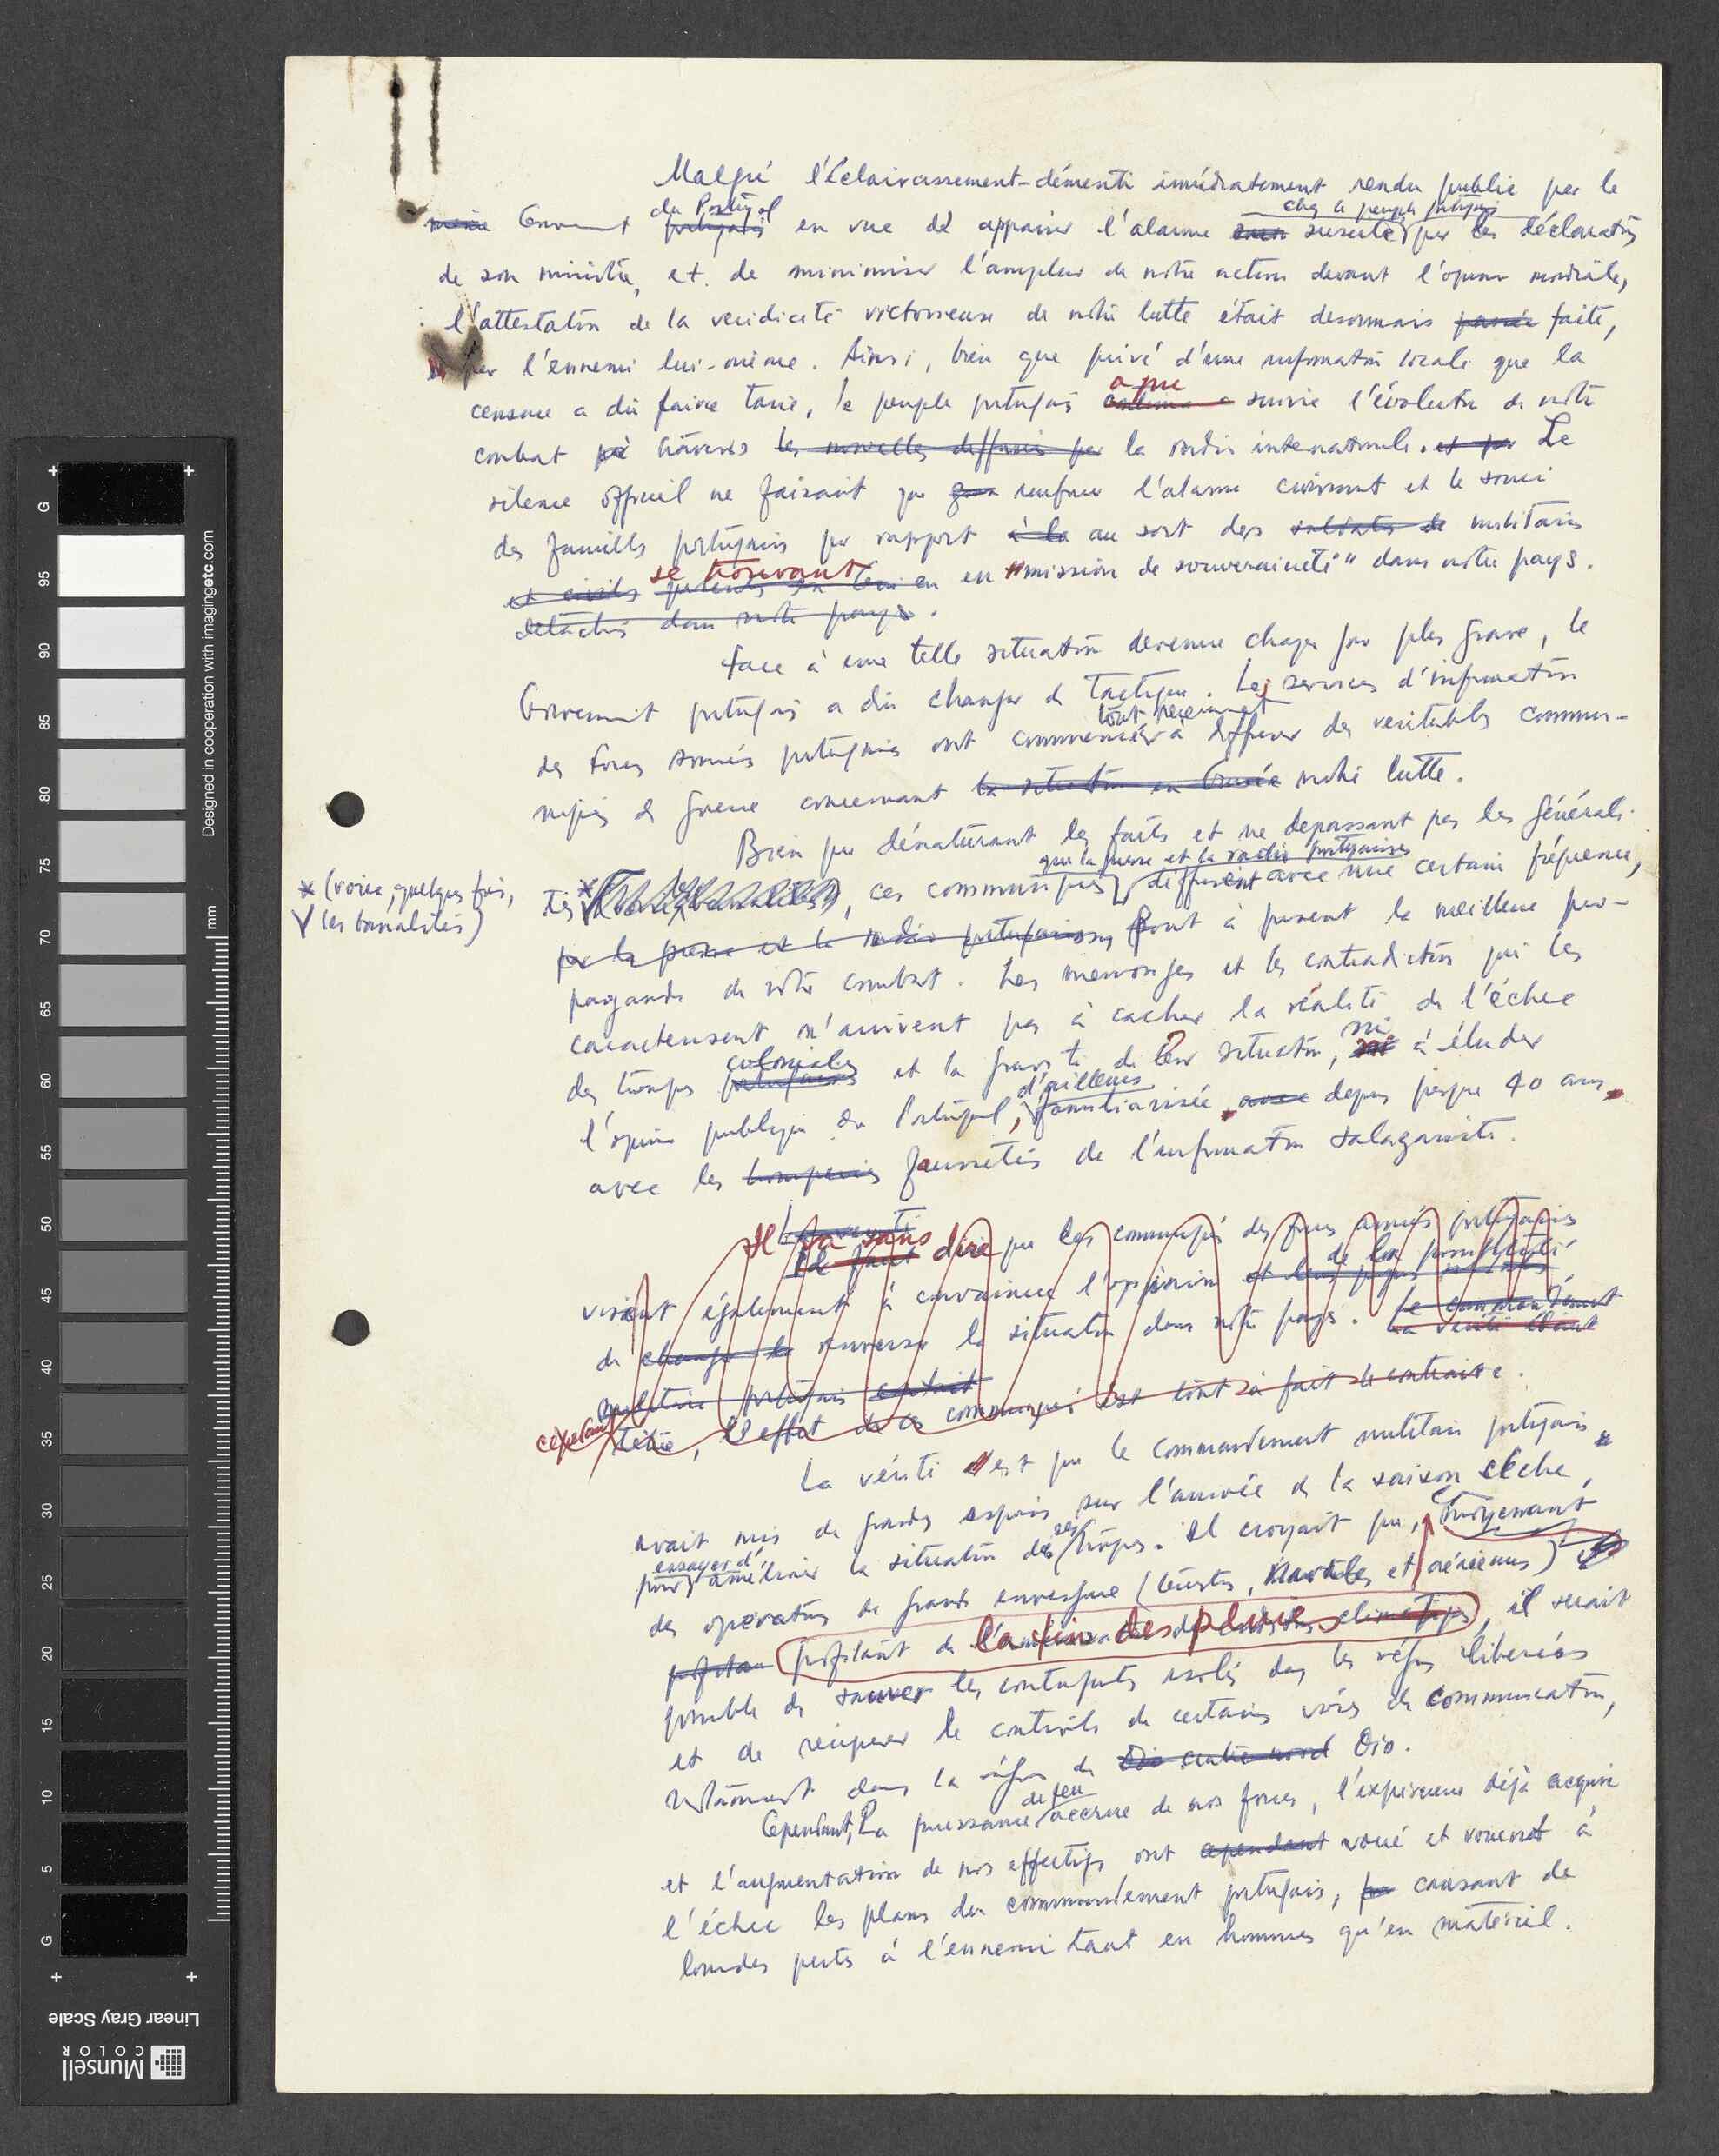 Malgré l'éclaircissement-démenti immédiatement rendu public par le
même Gouvernement du Portugal portugais en vue de appaiser l'alarme suscitée chez le peuple portugais par les déclarations
de son ministre, et de minimiser l'ampleur de notre action devant l'opinion mondiale,
l'attestation de la veridicité victorieuse de notre lutte était desormais faite,
par l'ennemi lui-même. Ainsi, bien que privé d'une information locale que la
censure a dû faire tarir, le peuple portugais a pu suivre l'évolution de notre
combat à travers les nouvelles diffusées par la radio internationale. et par Le
silence officiel ne faisait que renforcer l'alarme croissant et le souci
des familles portugaises par rapport à la au sort des soldats de militaires
et civils se trouvant en en "mission de souveraineté" dans notre pays.
détachés dans notre pays.
Face à une telle situation devenue chaque jour plus grave, le
Gouvernement portugais a dû changer de tactique. Les services d'information
des forces armées portugaises ont commencé tout récemment à diffuser de veritables commu-
niqués de guerre concernant la situation en Guinée notre lutte.
Bien que dénaturant les faits et ne depassant pas les générali-
* (voire, quelques fois,
V les banalités)
tés, ces communiqués que la presse et la radio portugaises diffusent avec une certaine fréquence,
par la presse et la radio portugaises, font à present la meilleure pro-
pagande de notre combat. Les mensonges et les contradictions qui les
caracterisent n'arrivent pas à cacher la réalité de l'échec
des troupes coloniales portugaises et la gravité de leur situation, ni à éluder
l'opinion publique du Portugal, d'ailleurs familiarisée avec depuis presque 40 ans
avec les tromperies faussetés de l'information salazariste.
Il va sans dire que les communiqués des forces armées portugaises
visent également à convaincre l'opinion de leur possibilité
de changer la renverser la situation dans notre pays. Le commandement
La vérité étant
militaire portugais
cependant, l'effet de ces communiqués est tout à fait le contraire.
La vérité est que le commandement militaire portugais
avait mis de grands espoirs sur l'arrivée de la saison sèche,
pour essayer d'améliorer la situation de ses troupes. Il croyait que, moyenant
des operations de grande envergure (terrestres, navales et aériennes)
profitant de la fin des pluies, il serait
possible de sauver les contingents isolés dans les régions liberées
et de récuperer le contrôle de certaines voies de communication,
notamment dans la région de Oio centre-nord Oio.
Cependant, La puissance de feu accrue de nos forces, l'expérience déjà acquise
et l'augmentation de nos effectifs ont cependant voué et vouent à
l'échec les plans du commandement portugais, causant de
lourdes pertes à l'ennemi tant en hommes qu'en matériel.
Designed in cooperation with imagingetc.com
mm
G
95
90
85
80
75
70
65
60
55
50
45
40
35
30
25
20
15
10
5
G
Linear Gray Scale
Munsell
COLOR